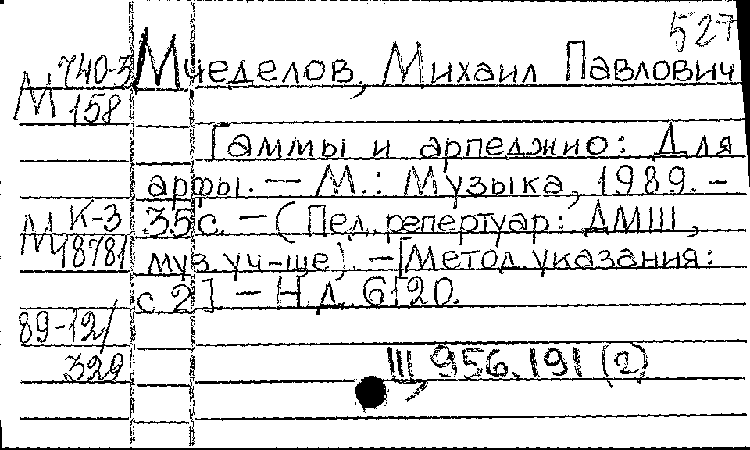 527
740-3 Мчеделов, Михаил Павлович
М 158
Гаммы и арпеджио: Для
арфы. — М.: Музыка, 1989. –
М К-3 35 с. — (Пед. репертуар: ДМШ,
18781 муз. уч-ще). — [Метод. указания:
с 2]. — Н. д. 6120.
89-12/
329 III 956.191 (2)